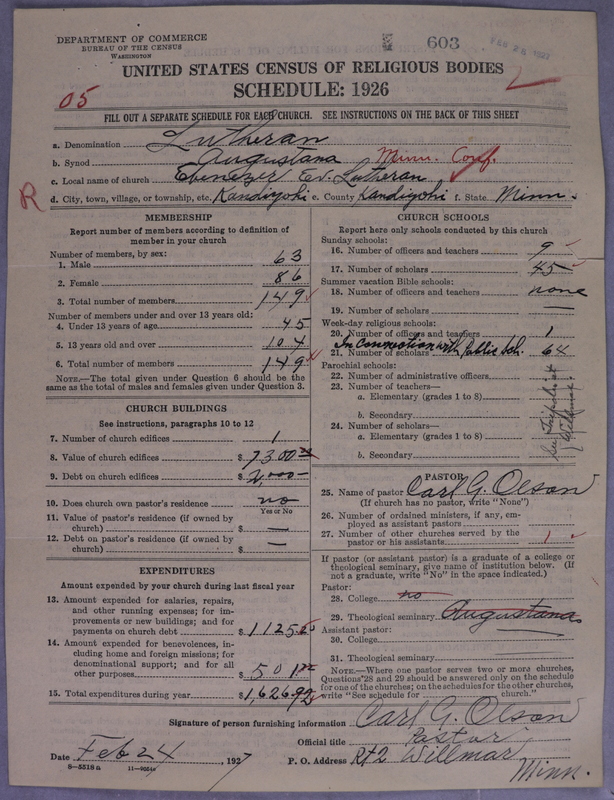 DEPARTMENT OF COMMERCE
BUREAU OF THE CENSUS
WASHINGTON
603
FEB 26 1927
UNITED STATES CENSUS OF RELIGIOUS BODIES
SCHEDULE: 1926
05
FILL OUT A SEPARATE SCHEDULE FOR EACH CHURCH. SEE INSTRUCTIONS ON THE BACK OF THIS SHEET
a. Denomination Lutheran
b. Synod Augustana Minn. Conf.
c. Local name of church Ebenezer Ev. Lutheran
R
d. City, town, village, or township, etc. Kandiyohi e. County Kandiyohi f. State Minn.
MEMBERSHIP
Report number of members according to definition of
member in your church
Number of members, by sex:
1. Male 63
2. Female 86
3. Total number of members 149
Number of members under and over 13 years old:
4. Under 13 years of age 45
5. 13 years old and over 104
6. Total number of members 149
NOTE.—The total given under Question 6 should be the
same as the total of males and females given under Question 3.
CHURCH BUILDINGS
See instructions, paragraphs 10 to 12
7. Number of church edifices 1
8. Value of church edifices $
9. Debt on church edifices $ 2,000
10. Does church own pastor's residence no
Yes or No
11. Value of pastor's residence (if owned by
church) $ —
12. Debt on pastor's residence (if owned by
church) $ —
EXPENDITURES
Amount expended by your church during last fiscal year
13. Amount expended for salaries, repairs,
and other running expenses; for im-
provements or new buildings; and for
payments on church debt $ 1125.
14. Amount expended for benevolences, in-
cluding home and foreign missions; for
denominational support; and for all
other purposes $ 501.
15. Total expenditures during year $ 1,626.92
CHURCH SCHOOLS
Report here only schools conducted by this church
Sunday schools:
16. Number of officers and teachers 9
17. Number of scholars 45
Summer vacation Bible schools:
18. Number of officers and teachers none
19. Number of scholars —
Week-day religious schools:
20. Number of officers and teachers 1
In connection with Public Sch.
21. Number of scholars 64
Parochial schools:
22. Number of administrative officers
23. Number of teachers—
a. Elementary (grades 1 to 8)
b. Secondary
24. Number of scholars—
a. Elementary (grades 1 to 8)
b. Secondary
PASTOR
25. Name of pastor Carl G. Olson
(If church has no pastor, write "None")
26. Number of ordained ministers, if any, em-
ployed as assistant pastors
27. Number of other churches served by the
pastor or his assistants 1
If pastor (or assistant pastor) is a graduate of a college or
theological seminary, give name of institution below. (If
not a graduate, write "No" in the space indicated.)
Pastor:
28. College no
29. Theological seminary Augustana
Assistant pastor:
30. College
31. Theological seminary
NOTE.—Where one pastor serves two or more churches,
Questions 28 and 29 should be answered only on the schedule
for one of the churches; on the schedules for the other churches,
write "See schedule for church."
Signature of person furnishing information Carl G. Olson
Official title Pastor
Date Feb 24, 1927 P. O. Address Rt 2 Willmar
Minn.
8—5518 a